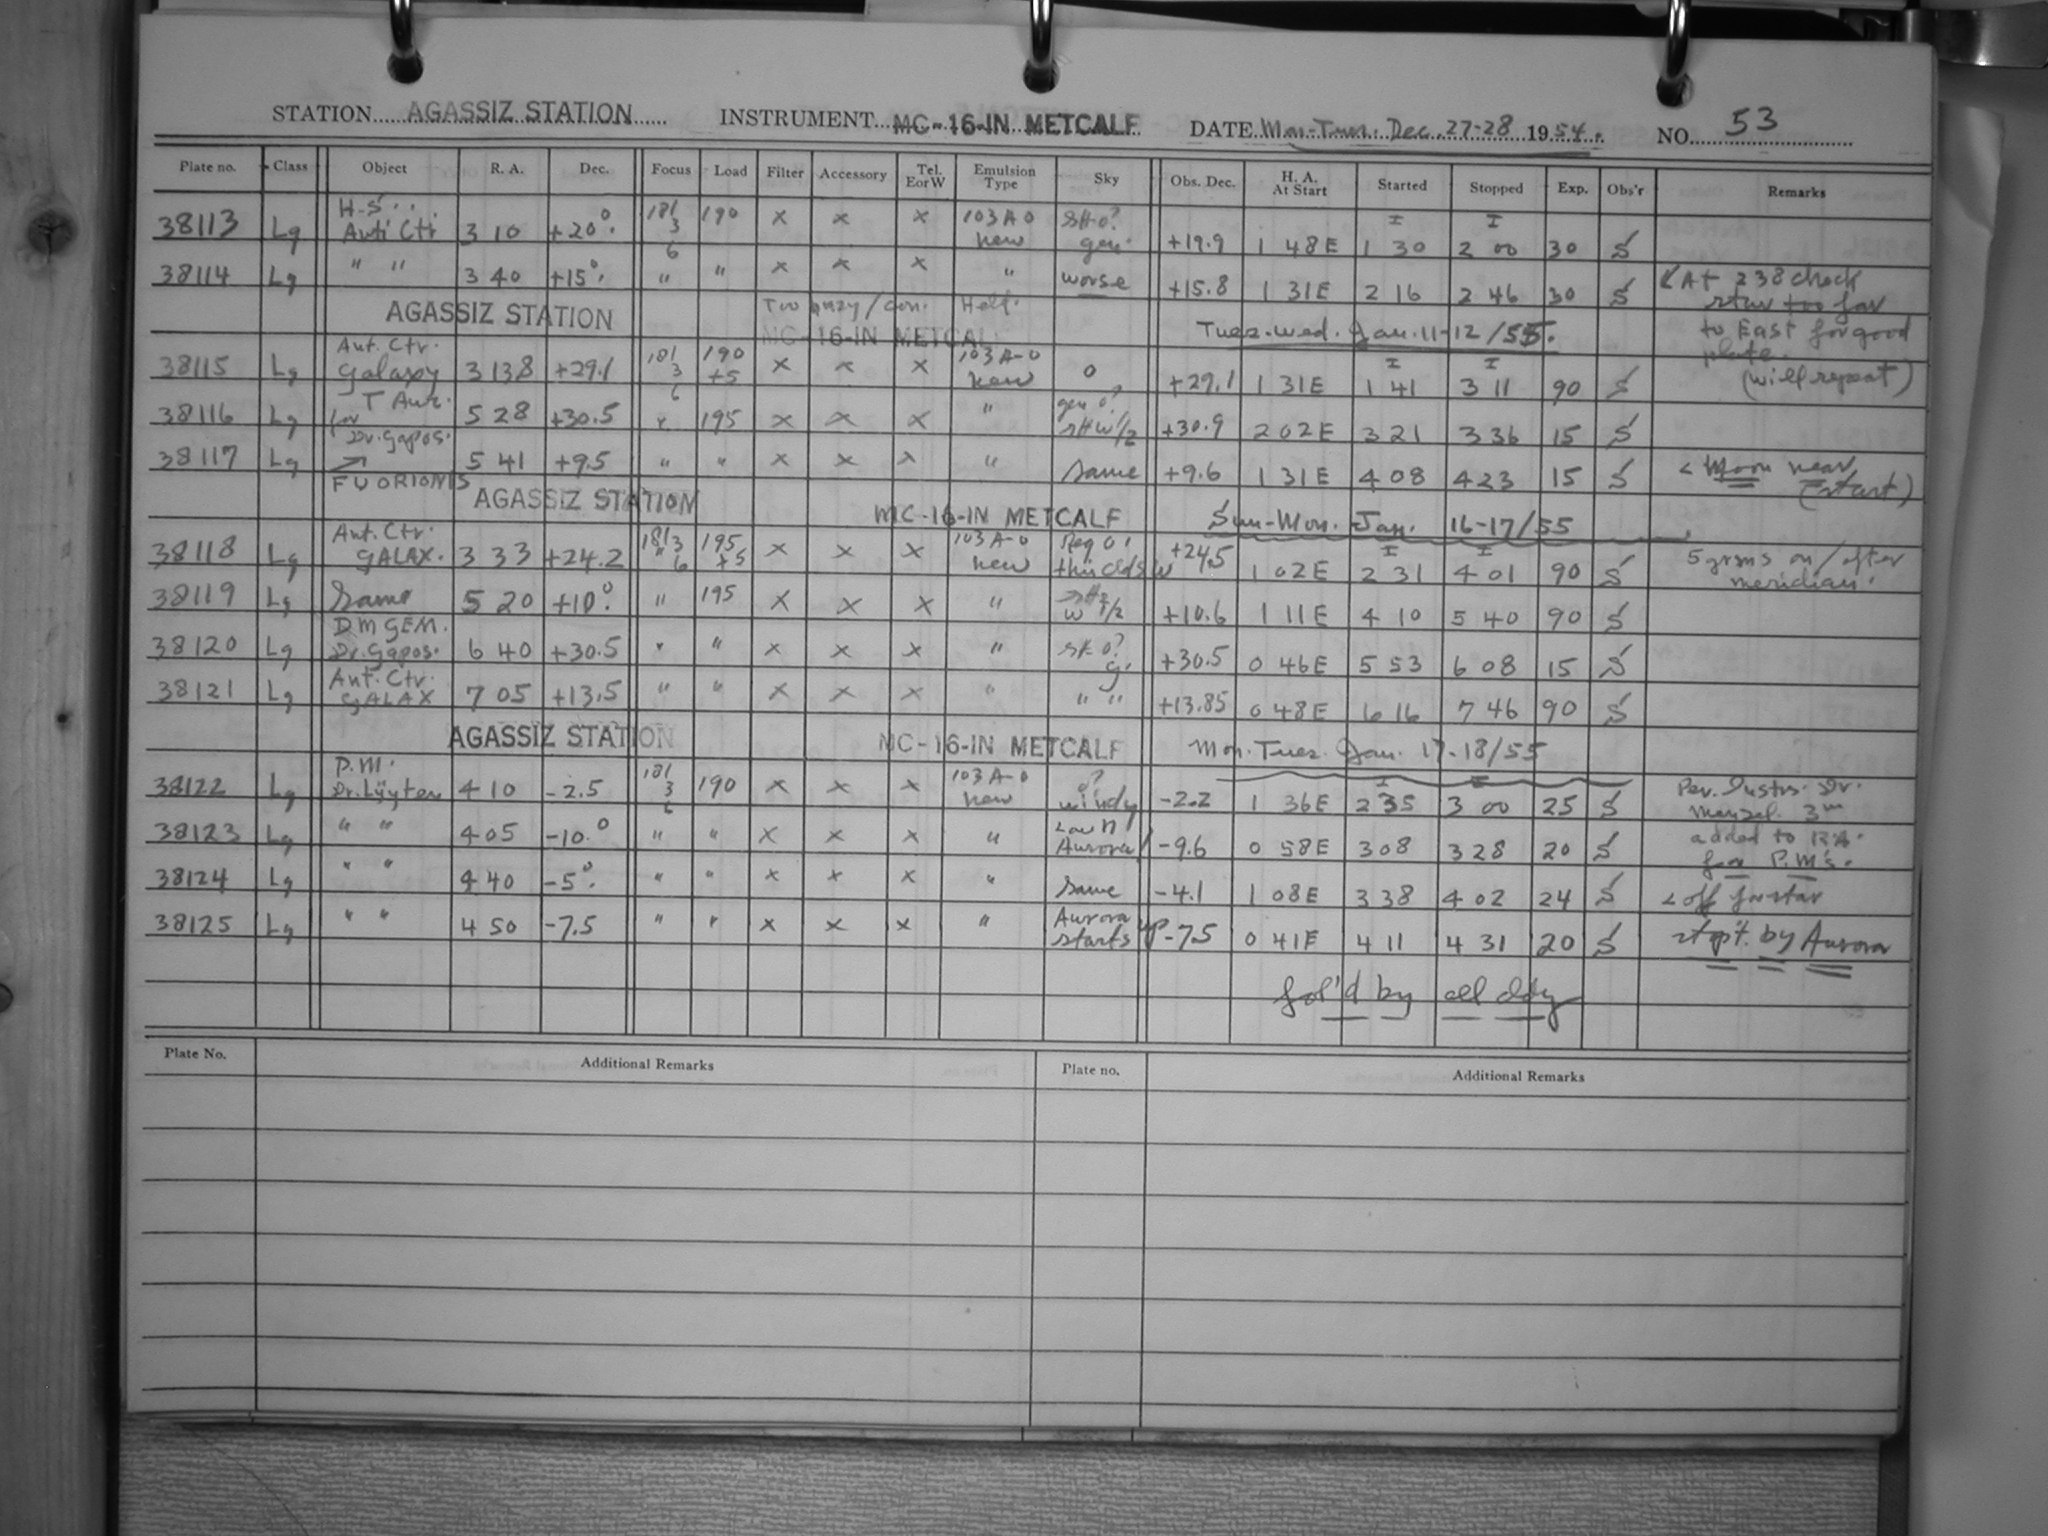 STATION AGASSIZ STATION INSTRUMENT MC-16-IN METCALF DATE Mon-Tues. Dec. 27-28 1954. NO. 53
Plate no. Class Object R. A. Dec. Focus Load Filter Accessory Tel. E or W Emulsion Type Sky Obs. Dec. H. A. At Start Started Stopped Exp. Obs'r Remarks
38113 Lg H.S. Anti Ctr 3 10 +20°. 181 3 6 190 x x x 103A0 new SHO? gen. +19.9 1 48E 1 30 2 00 30 S
38114 Lg " " 3 40 +15°. " " x x x " worse +15.8 1 31E 2 16 2 46 30 S At 238 check star too far
AGASSIZ STATION MC-16-IN METCALF Tues.-Wed. Jan. 11-12/55. to East for good plate. (will repeat)
38115 Lg Ant. Ctr. Galaxy 3 138 +29.1 181 3 6 190 +5 x x x 103A-0 new 0 +29.1 1 31E 1 41 3 11 90 S
38116 Lg T Aur. for Dr. Gapos. 5 28 +30.5 " 195 x x x " +30.9 2 02E 3 21 3 36 15 S
38117 Lg FU ORIONIS 5 41 +9.5 " " x x x " same +9.6 1 31E 4 08 4 23 15 S < Moon near (start)
AGASSIZ STATION MC-16-IN METCALF Sun-Mon. Jan. 16-17/55
38118 Lg Ant. Ctr. GALAX. 3 33 +24.2 1813 " 6 195 +5 x x x 103A-0 new +24.5 1 02E 2 31 4 01 90 S 5 grms on/after meridian.
38119 Lg Same 5 20 +10° " 195 x x x " +10.6 1 11E 4 10 5 40 90 S
38120 Lg DM GEM. Dr. Gapos. 6 40 +30.5 " " x x x " +30.5 0 46E 5 53 6 08 15 S
38121 Lg Ant. Ctr. GALAX 7 05 +13.5 " " x x x " " " +13.85 0 48E 6 16 7 46 90 S
AGASSIZ STATION MC-16-IN METCALF Mon. Tues. Jan. 17-18/55
38122 Lg P.M. Dr. Luyten 4 10 -2.5 181 3 6 190 x x x 103A-0 new 0? windy -2.2 1 36E 2 35 3 00 25 S Per. Instrs. Dr. Menzel. 3m
38123 Lg " " 4 05 -10.° " " x x x " Low N Aurora -9.6 0 58E 3 08 3 28 20 S added to R.A. for P.M's.
38124 Lg " " 4 40 -5°. " " x x x " Same -4.1 1 08E 3 38 4 02 24 S < off for star
38125 Lg " " 4 50 -7.5 " " x x x " Aurora starts up -7.5 0 41E 4 11 4 31 20 S stp't. by Aurora
fol'd by cldy
Plate No. Additional Remarks Plate no. Additional Remarks